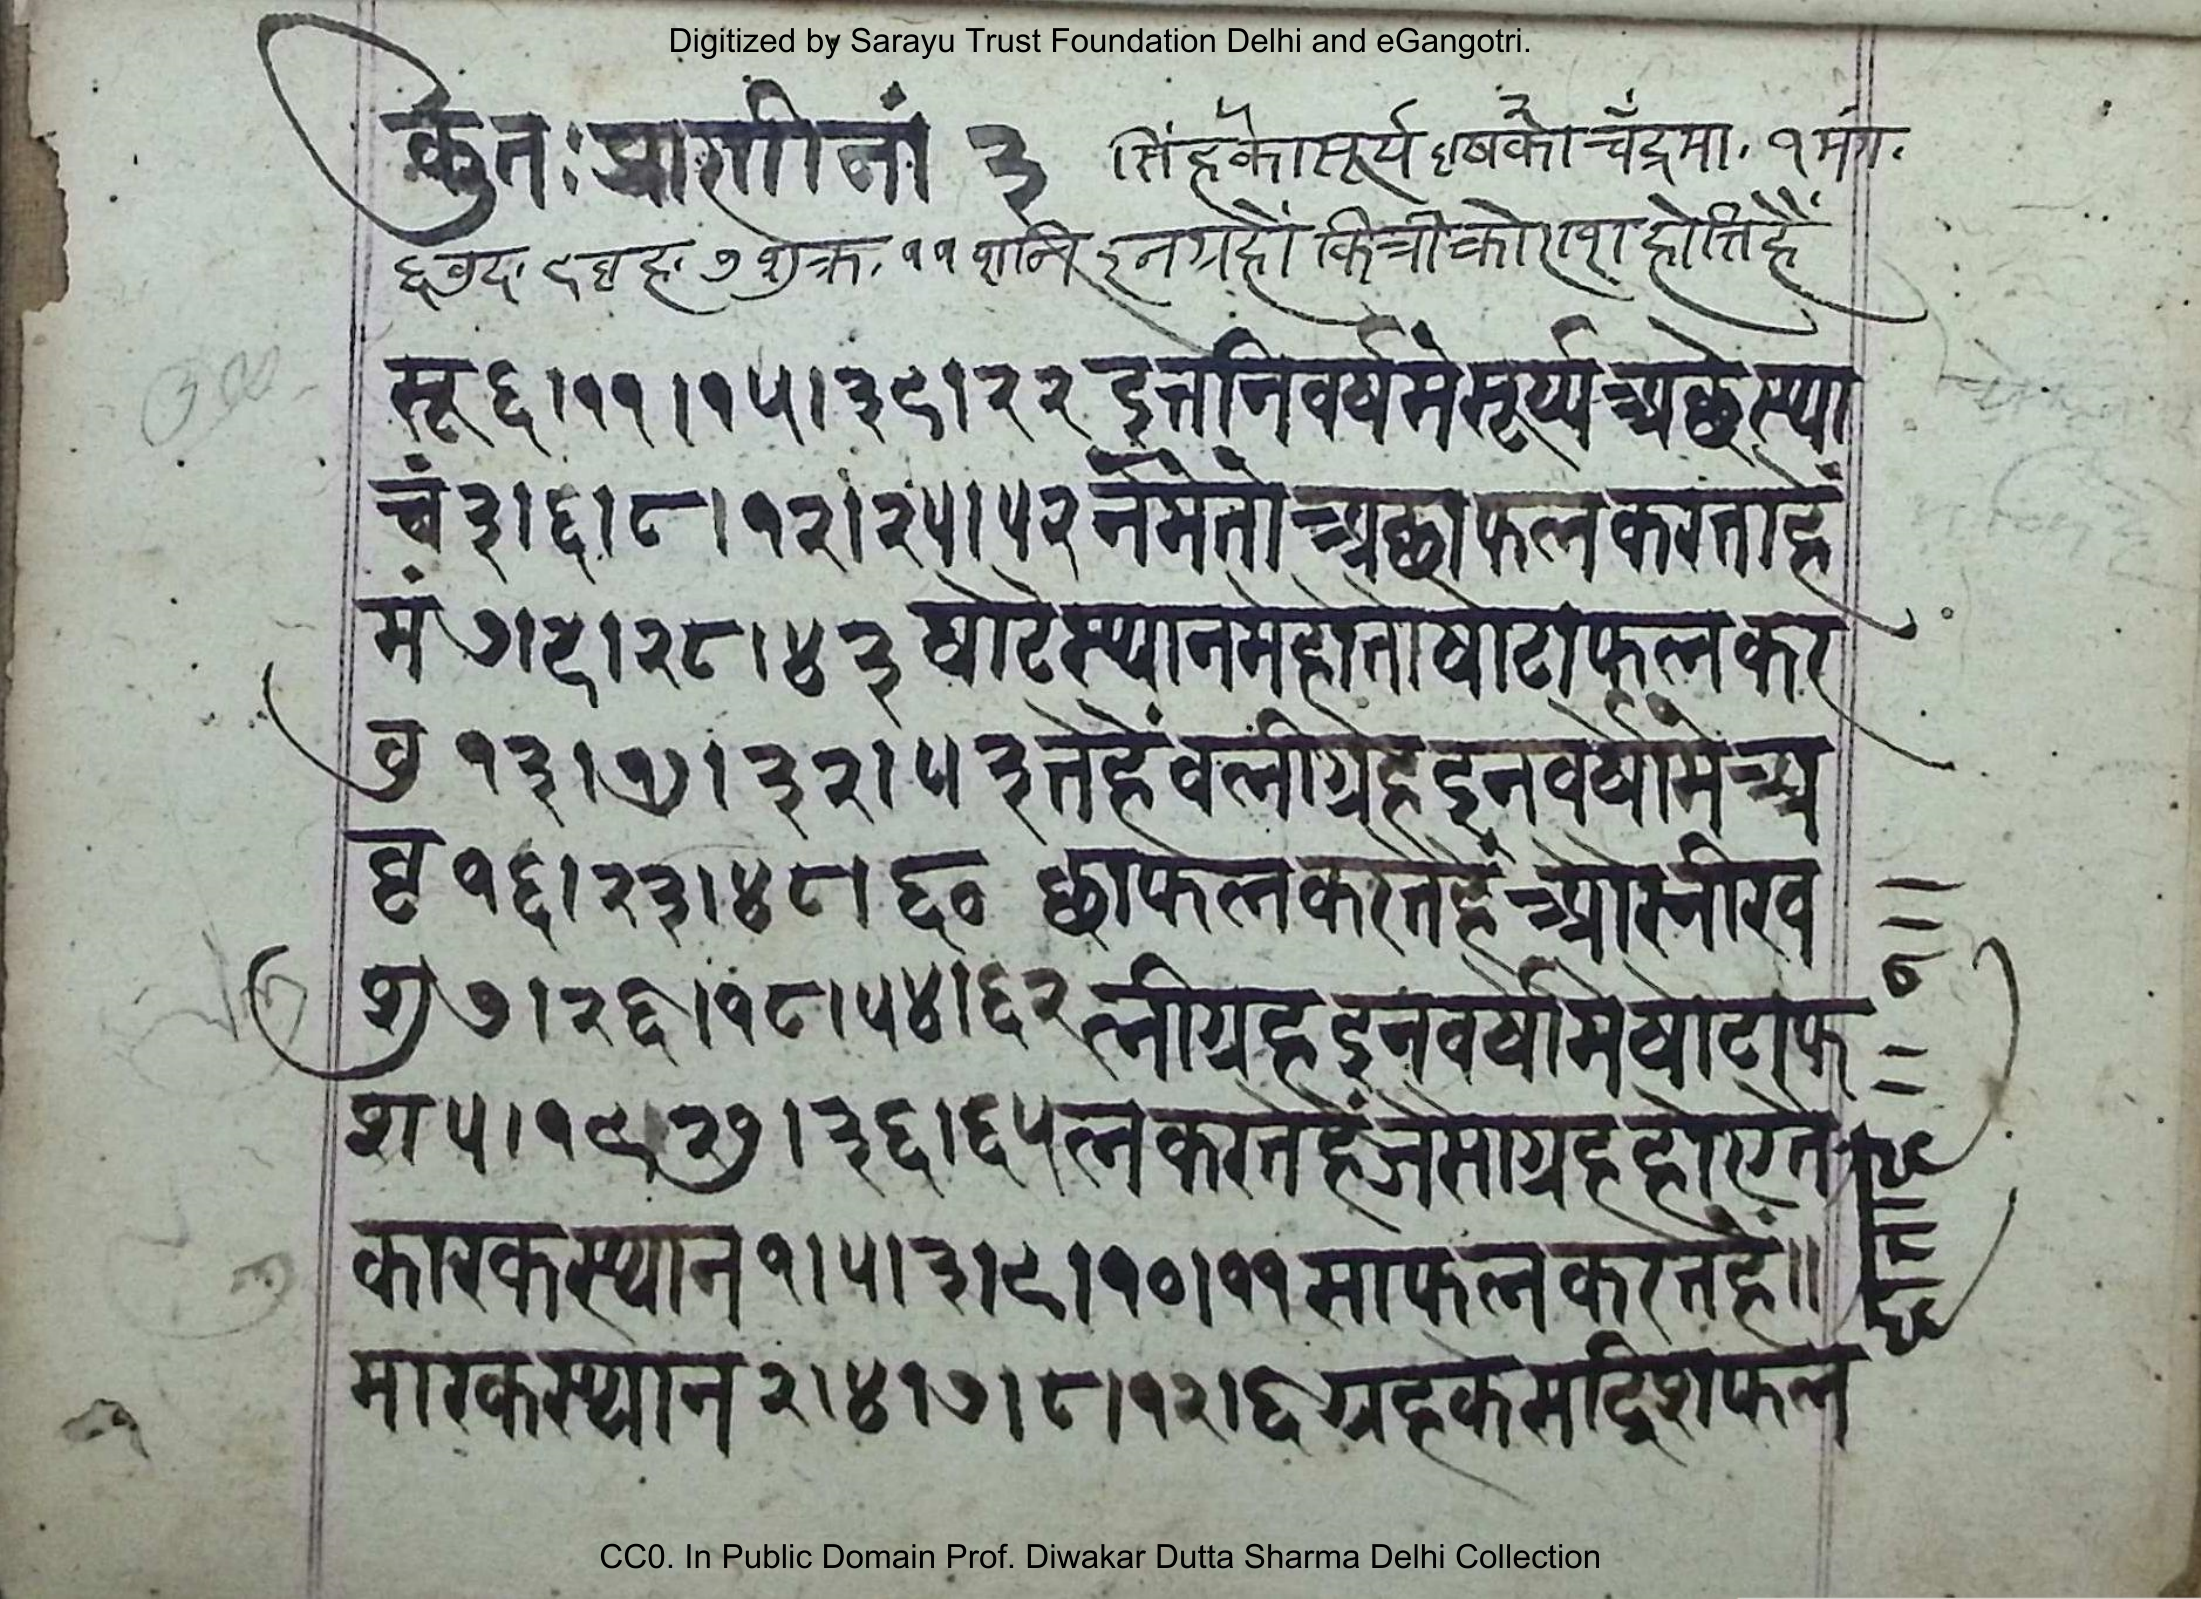 Digitized by Sarayu Trust Foundation Delhi and eGangotri.
कुतः प्राणीनां ३ सिंहकोसूर्य वृषको चँद्रमा. १ मंग.
६ वुद. ९ वृह. ७ शुक्र. ११ शनि इनग्रहों कित्रीकोणराशहोतिहैं
सू ६।११।१५।३९।२२ इतनिवर्षमेंसूर्य्यअछेस्था
चं ३।६।८।१२।२५।५२ नमेंतोअछाफलकरताहैं
मं ७।९।२८।४३ षोटेस्थानमेहोतोषोटाफलकर
वु १३।१७।३२।५३ तेहैंवलीग्रहइनवर्षोंमेअ
वृ १६।२३।४८।६० छाफलकरतेहैं ओरनीरव
शु ७।२६।१८।५४।६२ लीग्रहइनवर्षोमेषोटाफ
श ५।१९।२७।३६।६५ लकरतेहैंजेसाग्रहहोए
कारकस्थान १।५।३।९।१०।११ साफलकरतेहैं॥
मारकस्थान २।४।७।८।१२।६
CC0. In Public Domain Prof. Diwakar Dutta Sharma Delhi Collection